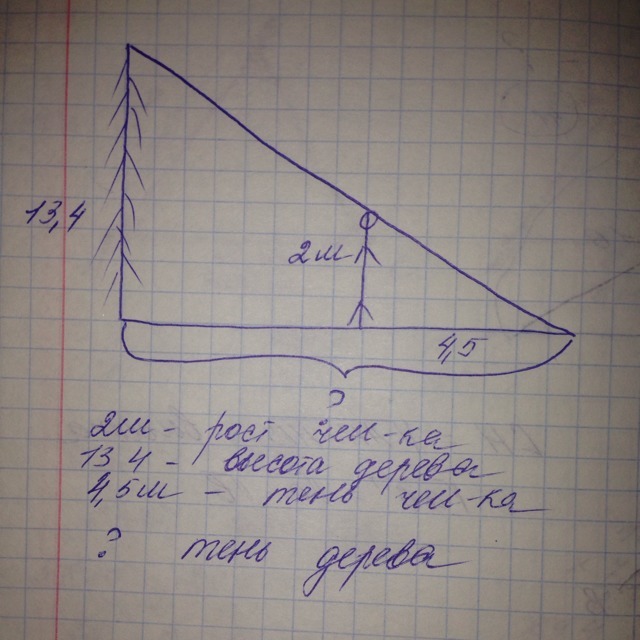 13,4
2м
4,5
?
2м - рост чел-ка
13 4 - высота дерева
4,5м - тень чел-ка
? тень дерева